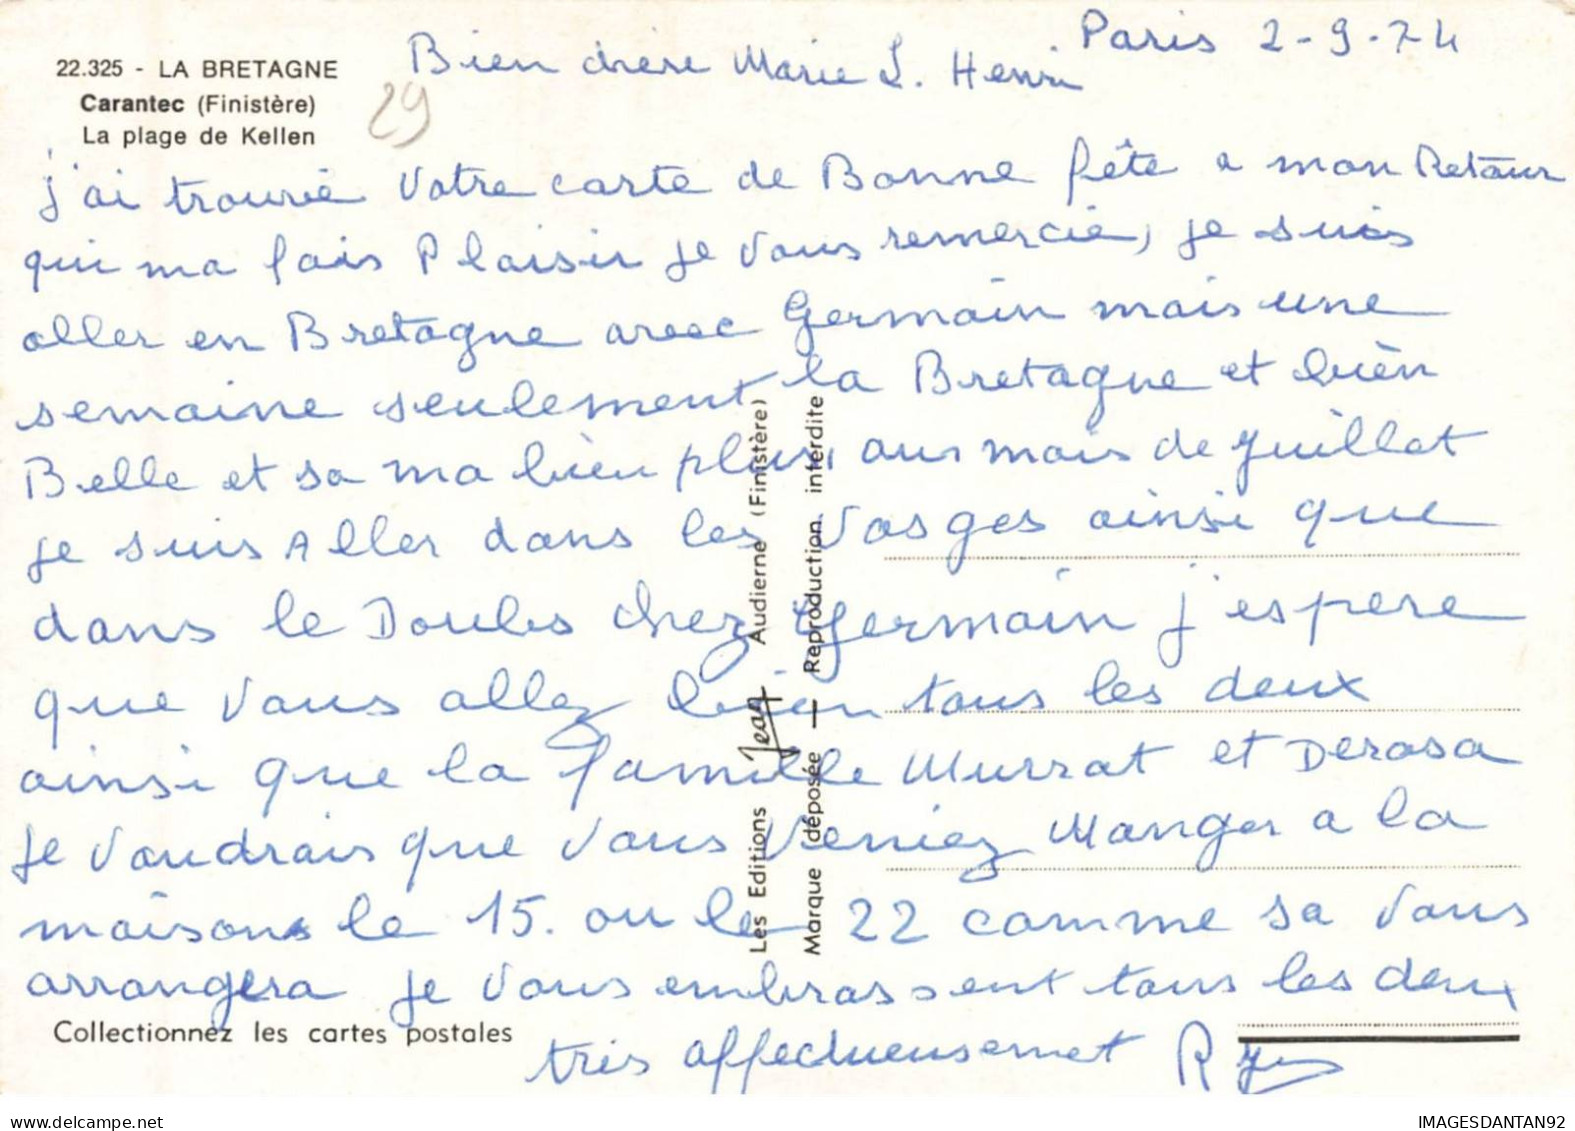 22.325 - LA BRETAGNE
Carantec (Finistère)
La plage de Kellen
29
Paris 2-9-74
Bien chère Marie L. Henri
j'ai trouvé votre carte de Bonne fête a mon Retour
qui ma fais Plaisir je vous remercie, je suis
aller en Bretagne avec Germain mais une
semaine seulement la Bretagne et bien
Belle et sa ma bien plus, aus mois de juillet
je suis Aller dans les Vosges ainsi que
dans le Doubs chez Germain j'espere
que vous allez bien tous les deux
ainsi que la famille Murrat et Derosa
je voudrais que vous veniez Manger a la
maisons le 15. ou le 22 comme sa vous
arrangera je vous embrassent tous les deux
très affectueusemet
Les Editions Jean Audierne (Finistère)
Marque déposée — Reproduction interdite
Collectionnez les cartes postales
IMAGESDANTAN92